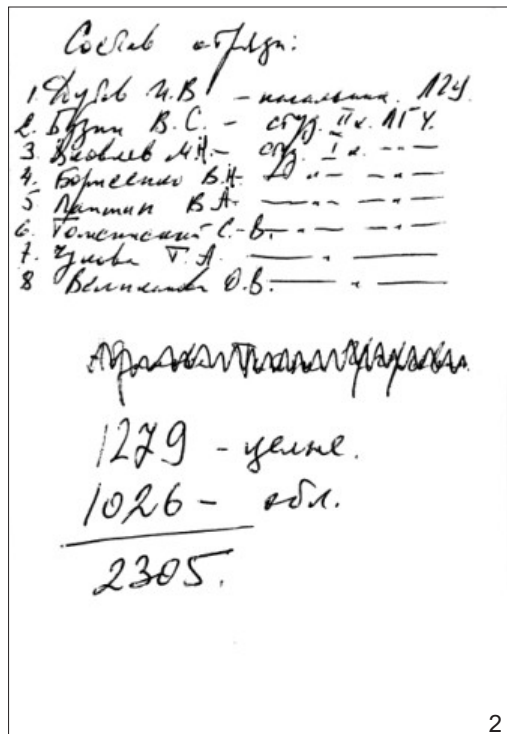 Состав отряда:
1. Дубов И.В. – начальник. ЛГУ.
2. Бузин В.С. – студ. II к. ЛГУ.
3. Яковлев М.Н. – студ. I к. –"–
4. Борисенко В.Н. –"– –"–
5 Лаптин В.А. –"– –"–
6. Томсинский С.В. –"– –"–
7. Т.А. — " —
8 О.В. — " —
1279 – целые.
1026 – обл.
2305.
2